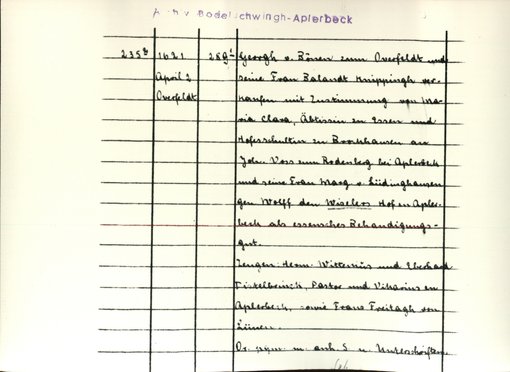 Arch. v. Bodelschwingh-Aplerbeck
235a 1621 289 Georgh v. Bönen zum Overfeldt und
April 2 seine Frau Balandt Knippingh ver-
Overfeldt kaufen mit Zustimmung von Ma-
ria Clara, Äbtissin zu Essen und
Hofesschulten zu Brockhausen an
John Voss zum Rodenberg bei Aplerbeck
und seine Frau Marg v. Lüdinghausen
gen Wolff den Wiselers Hof in Apler-
beck als essensches Behandigungs-
gut.
Zeugen: Herm. Wittenius und Eberhard
Pastor und Vikarius in
Aplerbeck, sowie Frans Freitagh von
Lünen.
Or. pgm. m. anh. S. u. Unterschriften